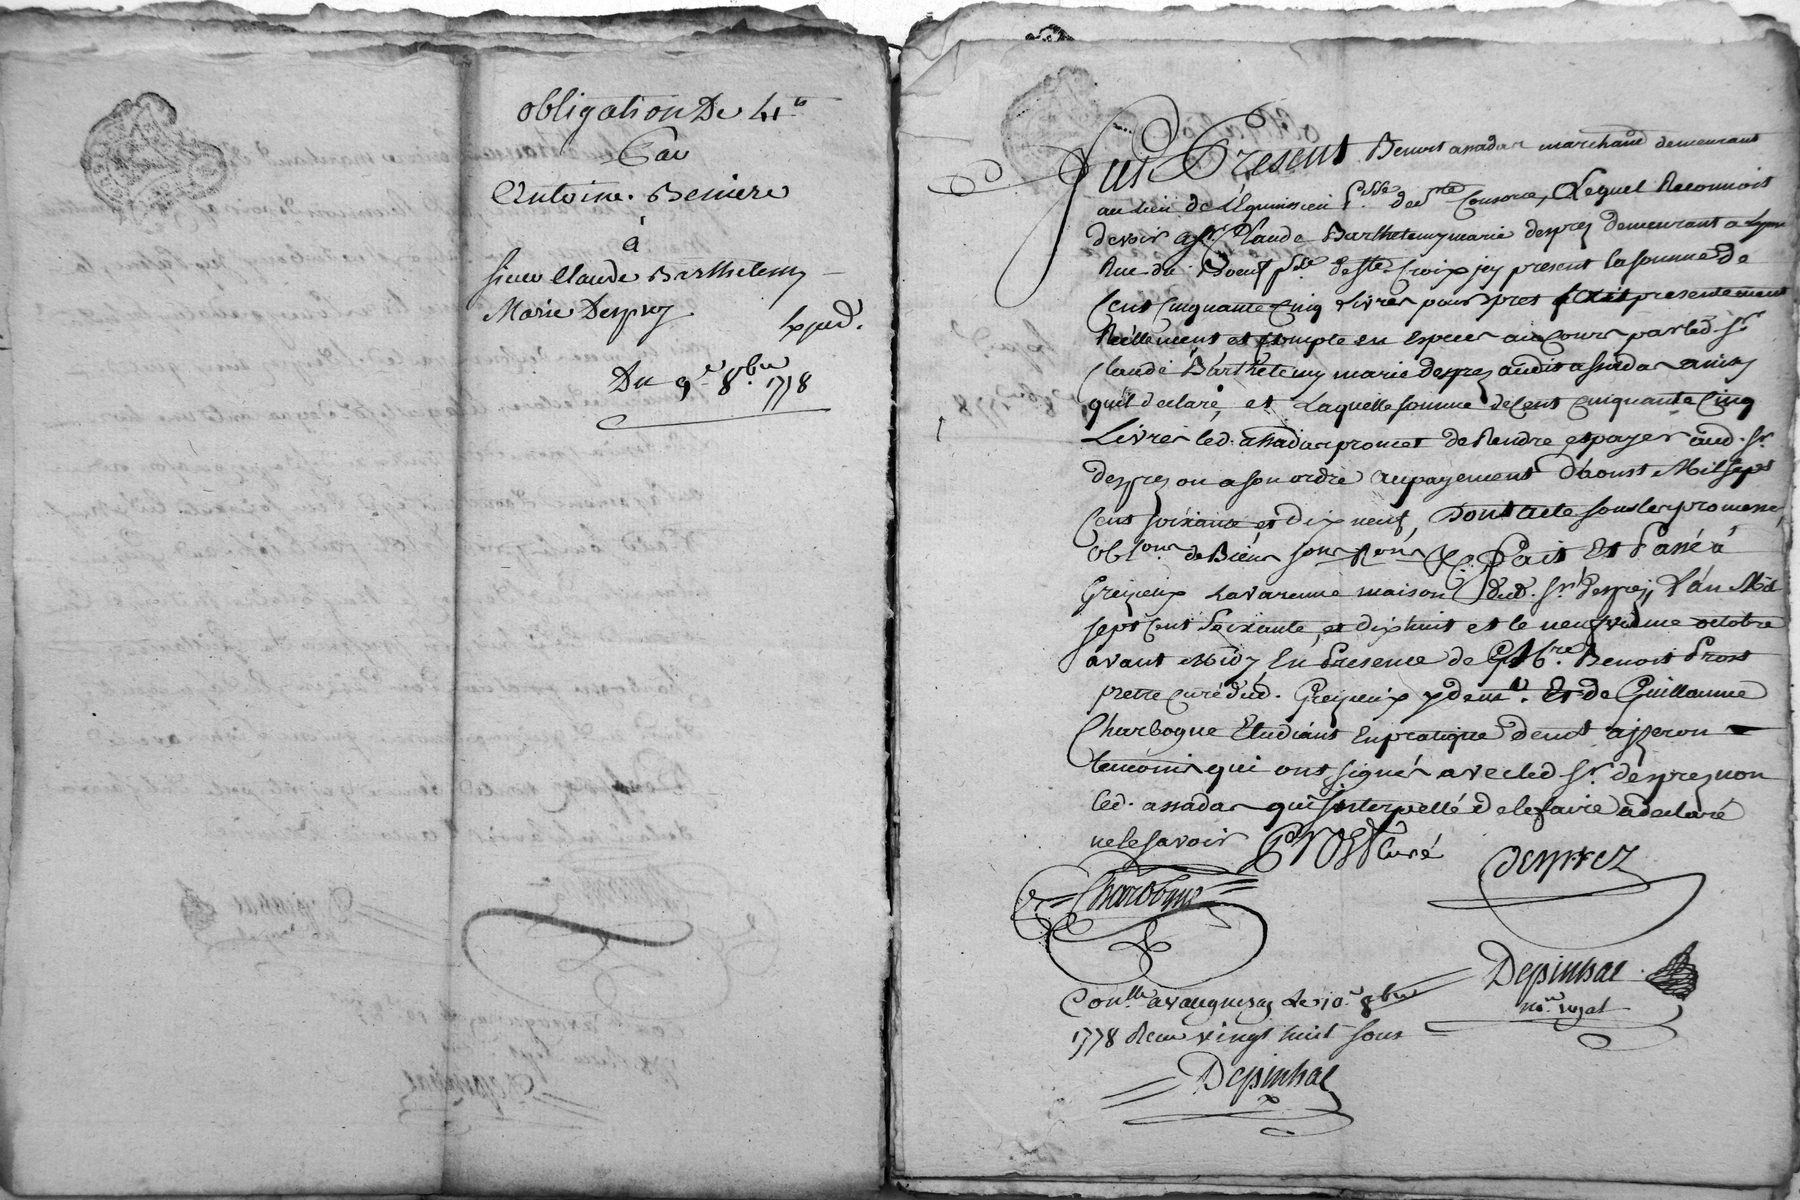 obligation De 41 ^ts
Par
Antoine. Beniere
à
sieur Claude Barthelemy
Marie Desprez
Expéd.
Du 9.e 8.bre 1778
Fut Présent Benoit assadas marchand demeurant
au lieu de P.sse de Consorce, Lequel Reconnoit
devoir a Sr. Claude Barthelemy marie desprez demeurant a Lyon
Rue du Boeuf p.sse de Ste. Croix jcy present la somme de
Cent cinquante Cinq Livres pour pret fait presentement
Réellement et Compte en especes au Cours par led. Sr.
Claude Barthelemy marie desprez audit assadas ainsy
quil declare, et Laquelle somme de Cent cinquante Cinq
Livres led. assadas promet de Rendre et payer aud. Sr.
desprez ou a son ordre au payement d'aoust Mil sept
Cent soixante et dix neuf, Dont acte sous les promesses,
obl.ons de Biens Fait Et Passé à
Grezieux Lavarenne maison dud. Sr. desprez, L'an Mil
sept Cent Soixante et dix huit et le neufvieme octobre
avant Midy En Presence de Benoit Prost
pretre Curé dud. Grezieux y dem.t Et de Guillaume
Charbogne Etudiant en pratique demt a jzeron
temoins qui ont signés avec led. Sr. desprez non
led. assadas qui interpellé de le faire a declaré
ne le savoir Prost Curé
Desprez
Charbogne
Depinhac
no.re royal
Con.lle a vaugneray Le 10.e 8bre
1778 Recu vingt huit sous
Depinhac